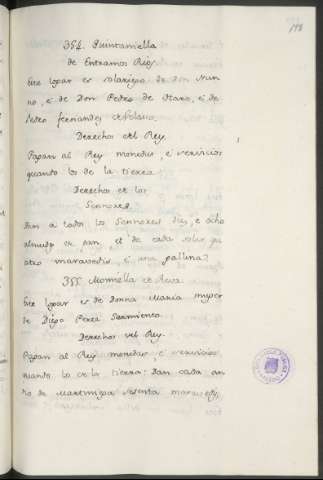 198
354. Quintaniella
de Entramos Rios.
Este logar es solariego de Don Nun
no, é de Don Pedro de Haro, é de
Pedro Fernandez
Derechos del Rey.
Pagan al Rey monedas, é servicios
quando los de la tierra
Derechos de los
Sennores.
Dan a todos los Sennores diez, é ocho
almudes de pan, et de cada solar qua
atro maravedis, é una gallina.
355. Monniella de
Este logar es de Donna Maria muger
de Diego Perez Sarmiento
Derechos del Rey.
Pagan al Rey monedas, é servicios
quando los de la tierra: Dan cada an
no de Martiniega sesenta maravedis,